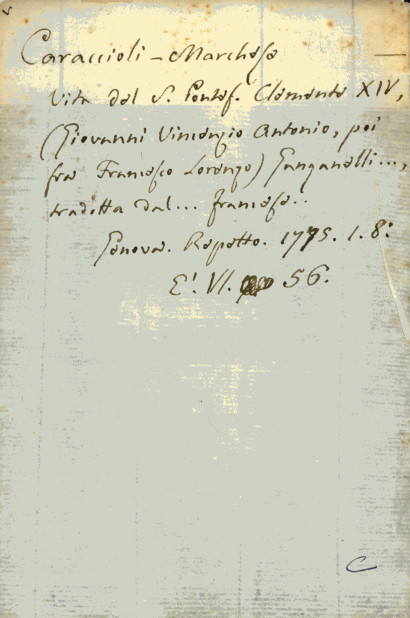 Caraccioli - Marchese
Vita del S. Pontef. Clemente XIV,
(Giovanni Vincenzio Antonio, poi
fra Francesco Lorenzo) Ganganelli...,
tradotta dal... francese..
Genova. Repetto. 1775. 1. 8:
E'. VI. 56.
C